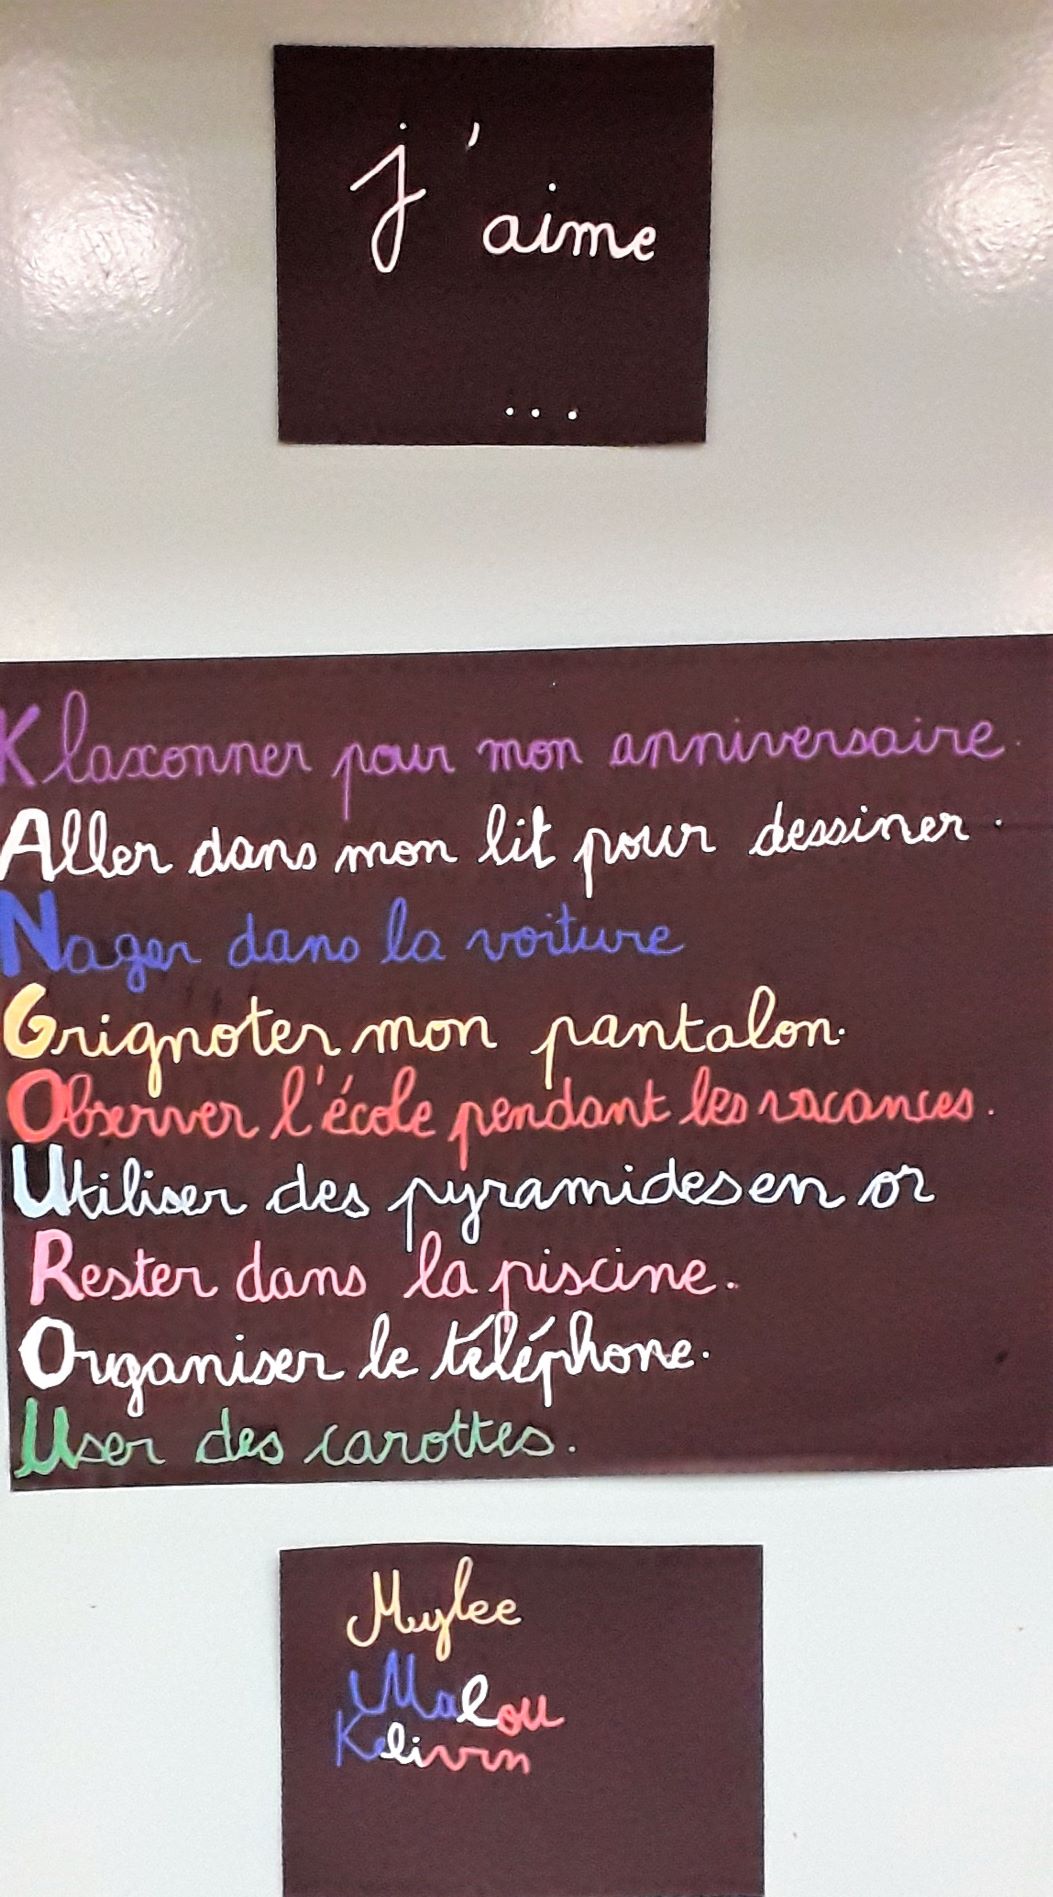 J'aime
...
Klaxonner pour mon anniversaire.
Aller dans mon lit pour dessiner.
Nager dans la voiture
Grignoter mon pantalon.
Observer l'école pendant les vacances.
Utiliser des pyramides en or
Rester dans la piscine.
Organiser le téléphone.
User des carottes.
Mylee
Malou
Kelivin